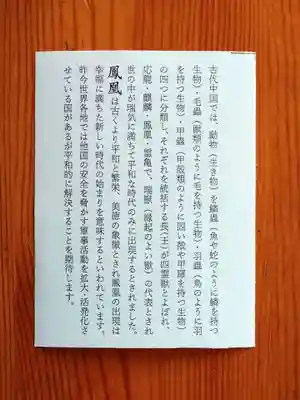 古代中国では、動物（生き物）を鱗蟲（魚や蛇のように鱗を持つ
生物）・毛蟲（獣類のように毛を持つ生物）・羽蟲（鳥のように羽
を持つ生物）・甲蟲（甲殻類のように固い殻や甲羅を持つ生物）
の四つに分類し、それぞれを統括する長（王）が四霊獣とよばれ、
応龍・麒麟・鳳凰・霊亀で、瑞獣（縁起のよい獣）の代表とされ
世の中が瑞気に満ちて平和な時代のみに出現するとされました。
鳳凰は古くより平和と繁栄、美徳の象徴とされ鳳凰の出現は
幸福に満ちた新しい時代の始まりを意味するといわれています。
昨今世界各地では他国の安全を脅かす軍事活動を拡大、活発化さ
せている国があるが平和的に解決することを期待します。